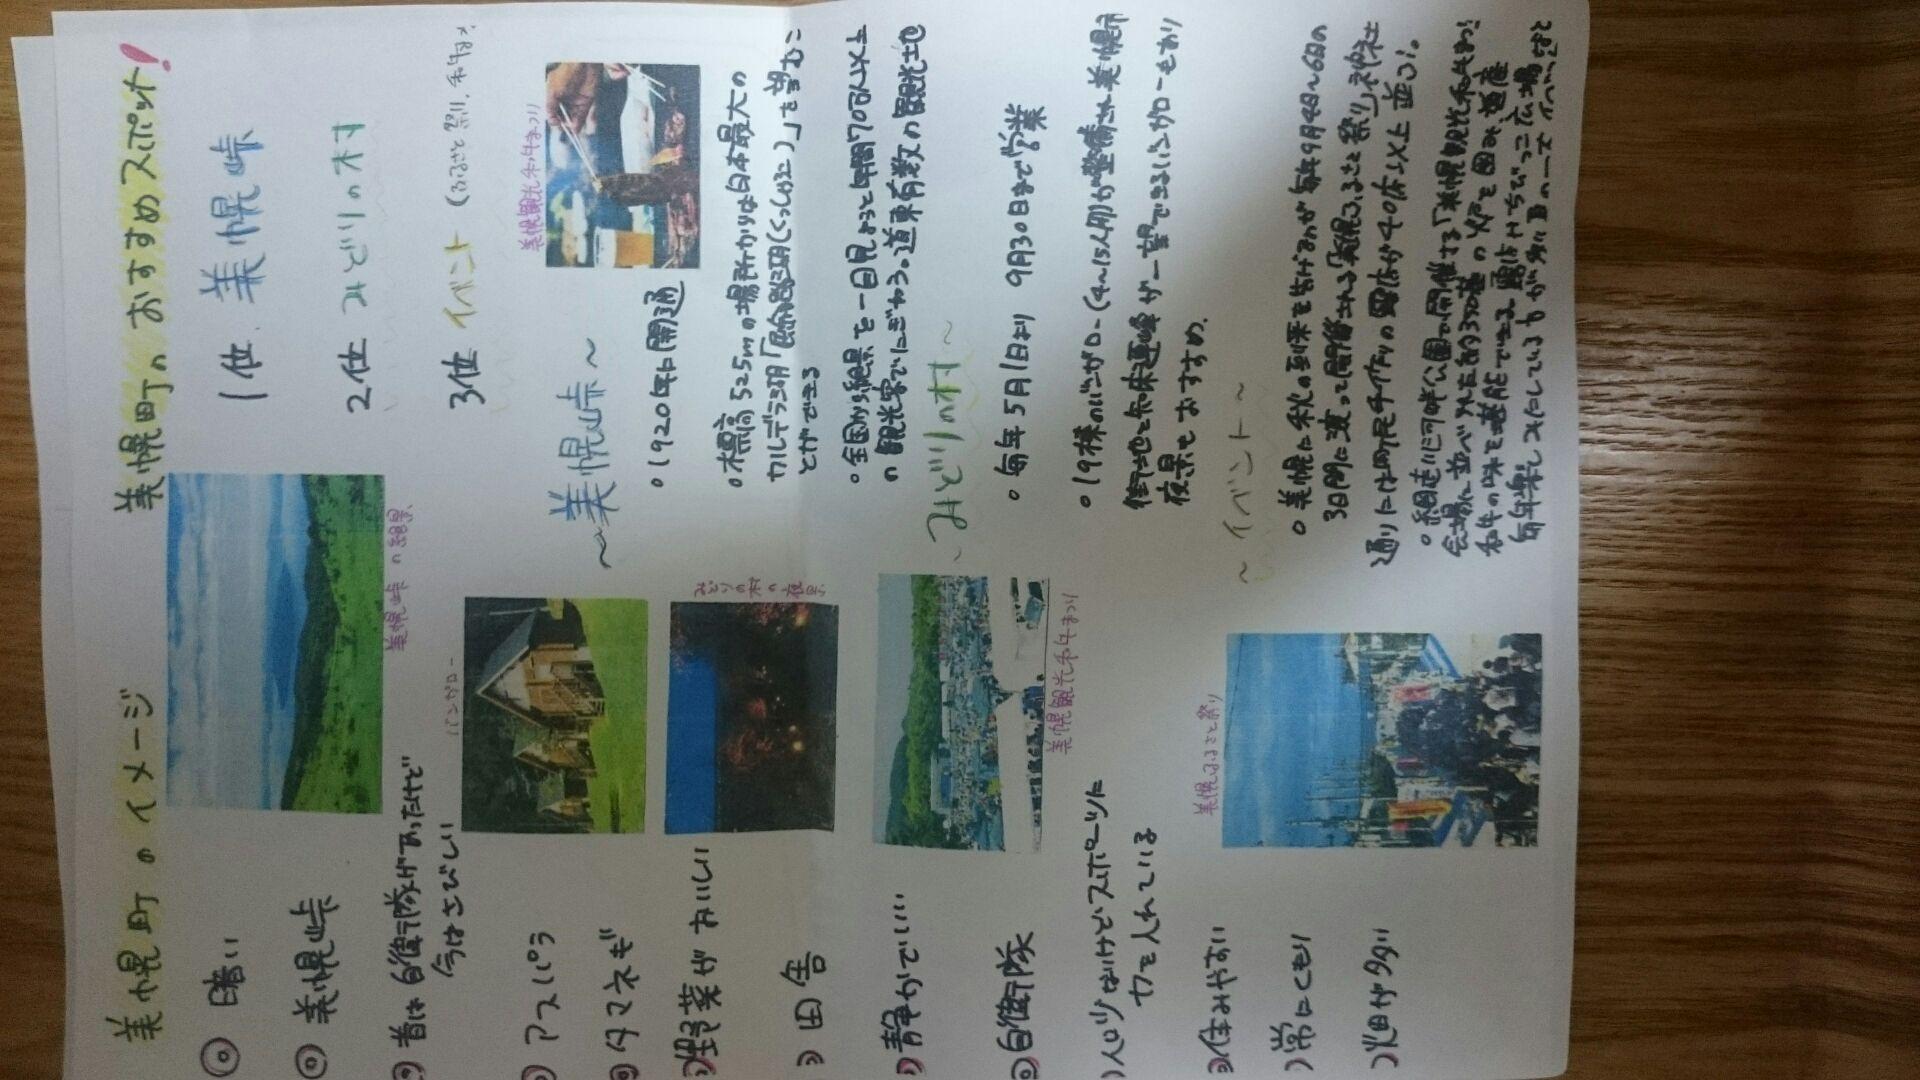 美幌町のイメージ
◎ 暗い
◎ 美幌峠
昔は自衛隊があったけど
今はさびしい
アスパラ
タマネギ
野菜がおいしい
田舎
静かでいい
自衛隊
人口少ないけどスポーツに
力を入れている
住みやすい
常にくもり
火田が多い
美幌町のおすすめスポット!
1位 美幌峠
2位 みどりの村
3位 イベント (ふるさと祭り、和牛
美幌峠の絶景
バンガロー
みどりの村の夜景
美幌観光和牛まつり
美幌ふるさと祭り
美幌観光和牛まつり
～美幌峠～
○1920年に開通
○標高525mの場所からは日本最大の
カルデラ湖「屈斜路湖(くっしゃろこ)」を望むこ
とができる
○全国から絶景を一目見ようと年間70万人以上
の観光客でにぎわう。道東有数の観光地
～みどりの村～
○毎年5月1日より 9月30日まで営業
○19棟のバンガロー(4～15人用)が整備され美幌市
街地と知床連峰が一望できるバンガローもあり
夜景もおすすめ。
～イベント～
○美幌に秋の到来を告げるのが毎年9月4日～6日の
3日間に渡って開催される「美幌ふるさと祭り」神社
通りには町民手作りの露店が40店以上並ぶ。
○網走川河畔公園で開催する「美幌観光和牛まつり」
会場に並べられた約350基の炉を囲み道産
和牛の味を堪能できる。露店やちびっこ広場など
毎年楽しみにしている